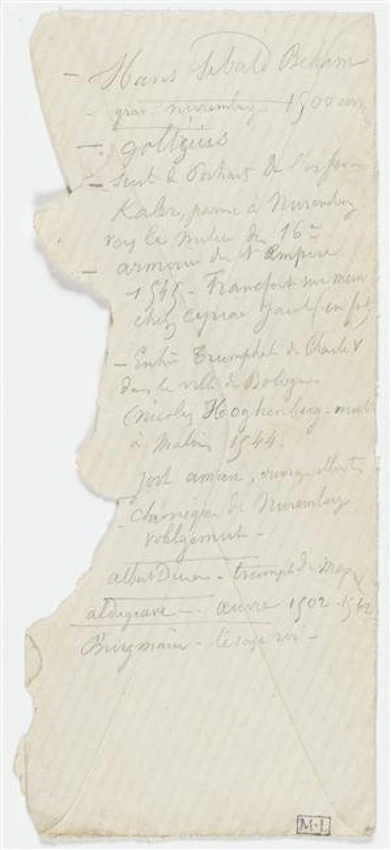 – Hans Sebald Beham
– grav. nuremberg 1500
– goltzius
– Suite de Portraits de
Kaler, parue à Nuremberg
vers le milieu du 16e
– armoiries du St Empire
1545 – Francfort sur mein
chez Cyriac Jacob (in fol)
– Entrée Triumphal de Charles V
dans la ville de Bologne
(Nicolas Hoghenberg – mort
à Malines 1544.
Jost aman, ouvrage
– chronique de Nuremberg
Volhgemut –
albert Durer – triumph de Max
aldegrave – œuvre 1502 – 1562
Burgmair – le sage roi –
M.L